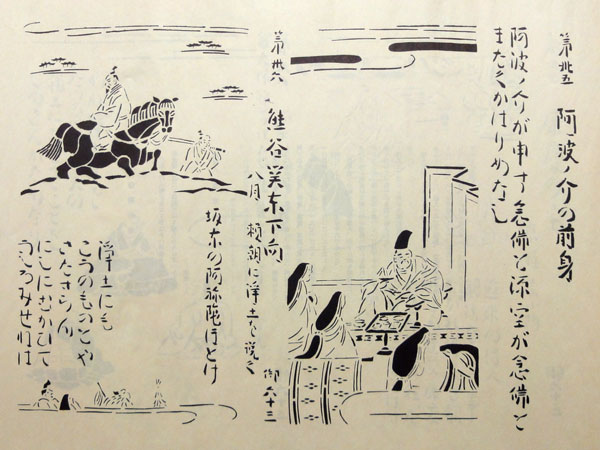 第卅五 阿波ノ介の前身
阿波ノ介が申す念佛と源空が念佛と
またくかはりめなし
第卅六 熊谷関東下向
八月 頼朝に浄土を説き 御六十三
坂東の阿弥陀行とけ
浄土にも
こうのものとや
さたすらん
にしにむかひて
うしろみせねは